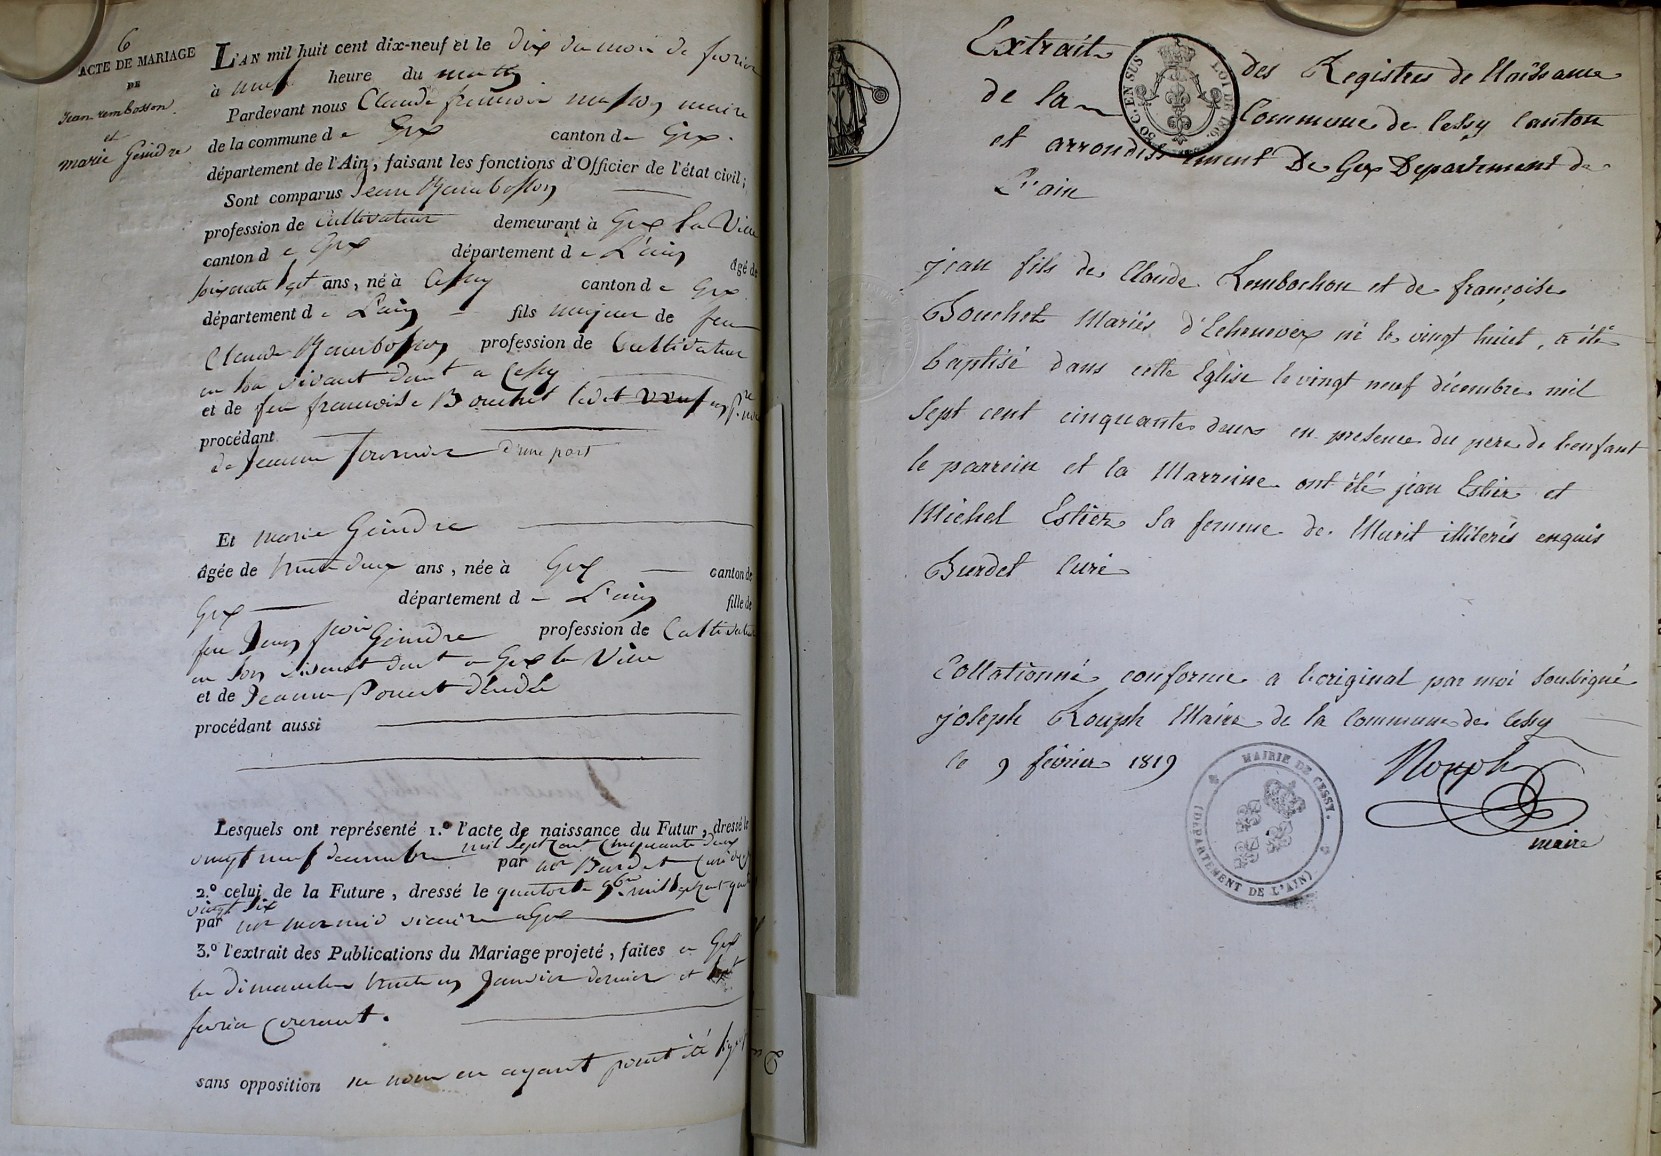 6
ACTE DE MARIAGE
DE
Jean rembosson
et
marie Geindre
L'AN mil huit cent dix-neuf et le dix du mois de fevrier
à neuf heure du matin
Pardevant nous Claude francois masson maire
de la commune d e Gex canton d e Gex.
département de l'Ain, faisant les fonctions d'Officier de l'état civil;
Sont comparus Jean Rambosson
profession de cultivateur demeurant à Gex la Ville
canton d e Gex département d e L'ain âgé de
soixante sept ans, né à Cessy canton d e Gex
département d e L'ain fils majeur de feu
Claude Rambosson profession de Cultivateur
en son vivant dem.t a Cessy
et de feu francoise Bouchet ledit veuf en p.re noce
procédant
de Jeanne fournier d'une part
Et marie Geindre
âgée de trente deux ans, née à Gex canton de
Gex département d e L'ain fille de
feu Jean fcois Geindre profession de Cultivateur
en son vivant dem.t a Gex la Ville
et de Jeanne Ponest
procédant aussi
Lesquels ont représenté 1.º l'acte de naissance du Futur, dressé le
vingt neuf decembre mil sept cent cinquante deux
par mr Burdet Curé
2.º celui de la Future, dressé le quatorze 9bre mil sept cent quatre
vingt six
par mr mermid vicaire a Gex
3.º l'extrait des Publications du Mariage projeté, faites a Gex
les dimanches trente un Janvier dernier et sept
fevrier Courant.
sans opposition ne nous en ayant point été
Extrait des Registres de Naissance
de la Commune de Cessy Canton
et arrondissement De Gex Departement de
L'ain
50 C. EN SUS
LOI DE 1816.
jean fils de Claude Rembochon et de françoise
Bouchet Mariés d'Echenevex né le vingt huict, a été
baptisé dans cette Eglise le vingt neuf décembre mil
sept cent cinquante deux en presence du pere de l'enfant
le parrein et la Marreine ont été jean Estier et
Michel Estier sa femme de Murit illiterés enquis
Burdet Curé
Collationné conforme a l'original par moi soussigné
joseph Rouph Maire de la Commune de Cessy
le 9 février 1819
Rouph
maire
MAIRIE DE CESSY.
(DÉPARTEMENT DE L'AIN)